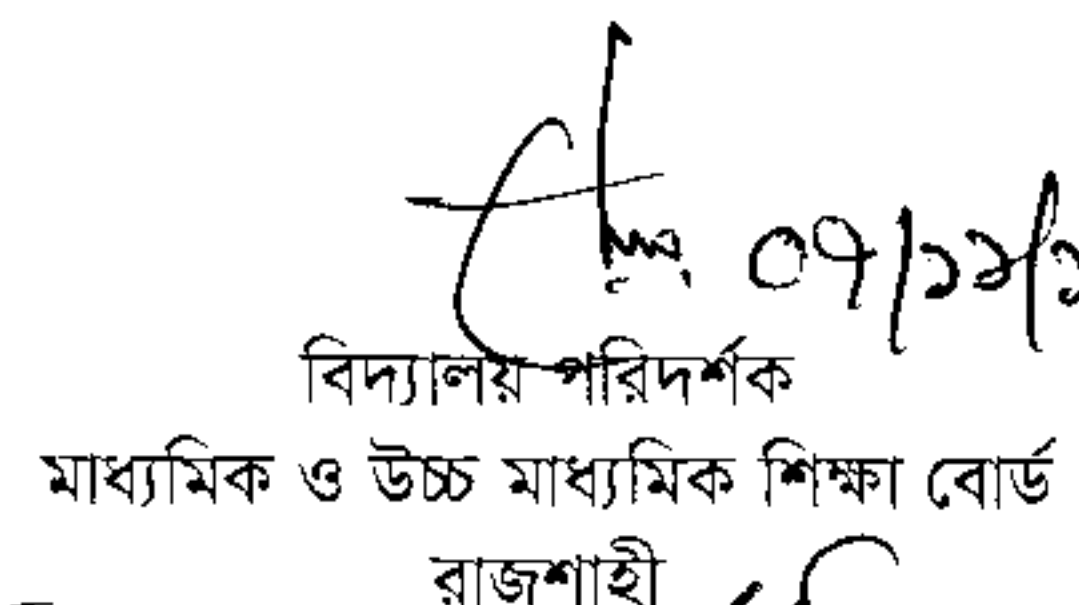 ০৭/১২/১
বিদ্যালয় পরিদর্শক
মাধ্যমিক ও উচ্চ মাধ্যমিক শিক্ষা বোর্ড
রাজশাহী